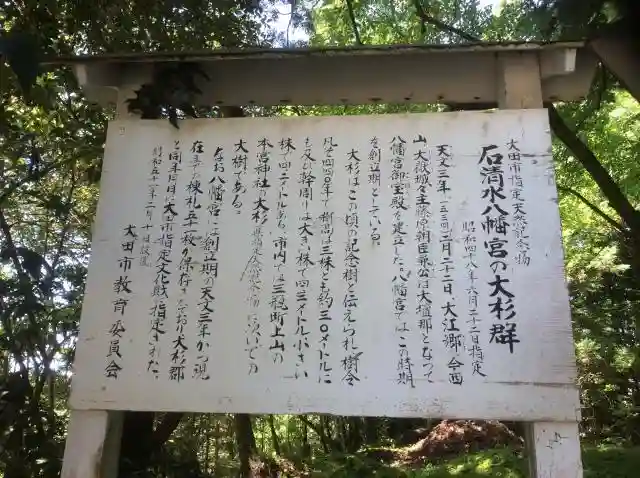 大田市指定天然記念物
石清水八幡宮の大杉群
昭和四八年六月二十二日指定
天文三年(一五三四)二月二十二日、大江郷(今西
山)大嶽城々主藤原晴臣兼公は大壇那となって
八幡宮御宝殿を建立した。八幡宮ではこの時期
を創立期としている。
大杉はこの頃の記念樹と伝えられ、樹令
凡そ四四〇年で樹高は三株とも約三〇メートルに
も及び幹周は大きい株で四・三メートル小さい
株で四・二メートルある。市内では三瓶町上山の
本宮神社の大杉(県指定天然記念物)に次いでの
大樹である。
なお八幡宮には創立期の天文三年かつ現
在まで棟札五十一枚が保存されており大杉群
と同年同月に大田市指定文化財に指定された。
昭和五十二年二月十日設置
大田市教育委員会